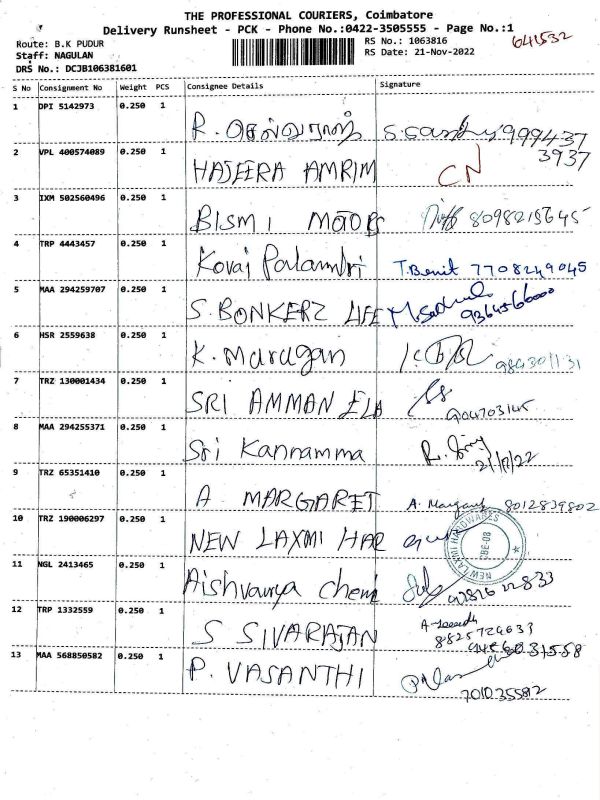 THE PROFESSIONAL COURIERS, Coimbatore
Delivery Runsheet - PCK - Phone No.:0422-3505555 - Page No.:1
Route: B.K PUDUR RS No.: 1063816 641532
Staff: NAGULAN RS Date: 21-Nov-2022
DRS No.: DCJB106381601
S No Consignment No Weight PCS Consignee Details Signature
1 DPI 5142973 0.250 1 R. செல்வராஜ் 999437
2 VPL 400574089 0.250 1 HAJEERA AMRIM CN 3937
3 IXM 502560496 0.250 1 BISMI MOTORS 8098215645
4 TRP 4443457 0.250 1 Kovai Palamudri T.Benit 7708249045
5 MAA 294259707 0.250 1 S. BONKERZ LIFE
6 HSR 2559638 0.250 1 K. Murugan
7 TRZ 130001434 0.250 1 SRI AMMAN ELA
8 MAA 294255371 0.250 1 Sri Kannamma
9 TRZ 65351410 0.250 1 A MARGARET 8012839802
10 TRZ 190006297 0.250 1 NEW LAXMI HAR NEW LAXMI HARDWARES CBE-08
11 NGL 2413465 0.250 1 Aishvarya Chemi
12 TRP 1332559 0.250 1 S SIVARAJAN 8825724633
13 MAA 568850582 0.250 1 P. VASANTHI